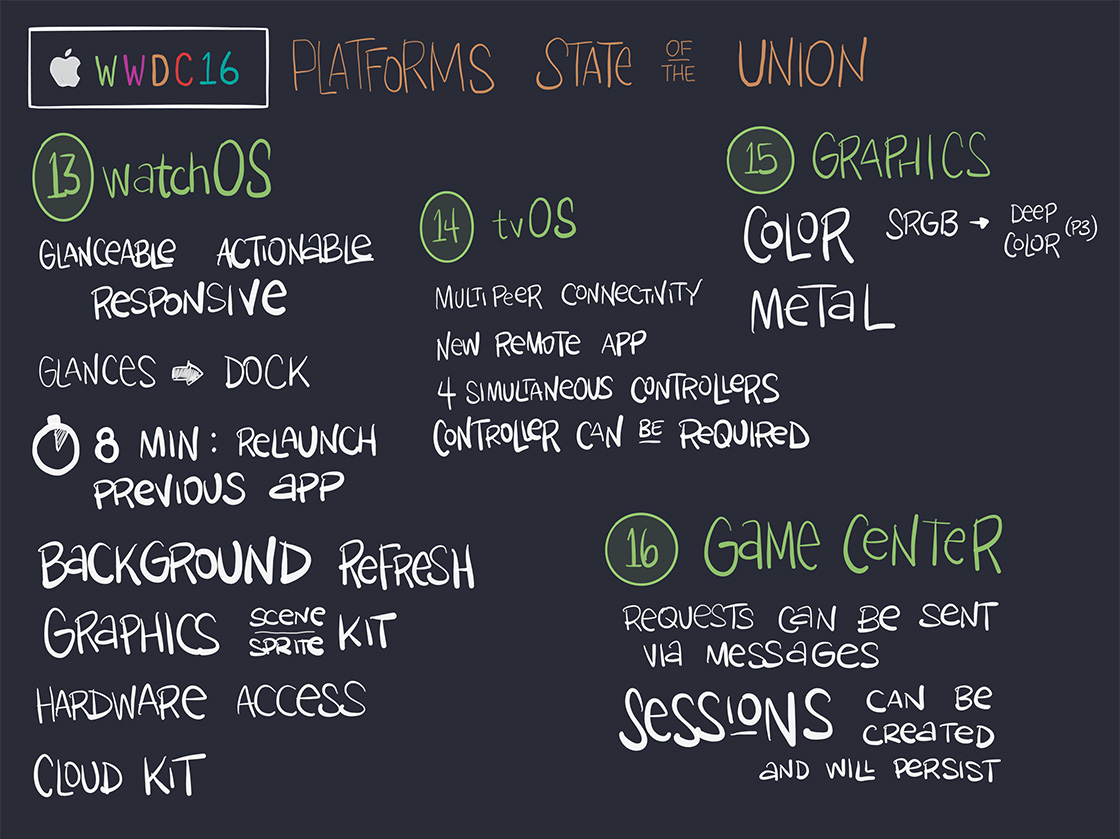 WWDC16 PLATFORMS STATE OF THE UNION
13 watchOS
GLANCEABLE ACTIONABLE
RESPONSIVE
GLANCES → DOCK
8 MIN: RELAUNCH
PREVIOUS APP
BACKGROUND REFRESH
GRAPHICS SCENE SPRITE KIT
HARDWARE ACCESS
CLOUD KIT
14 tvOS
MULTIPEER CONNECTIVITY
NEW REMOTE APP
4 SIMULTANEOUS CONTROLLERS
CONTROLLER CAN BE REQUIRED
15 GRAPHICS
COLOR SRGB → DEEP COLOR (P3)
METAL
16 GAME CENTER
REQUESTS CAN BE SENT
VIA MESSAGES
SESSIONS CAN BE
CREATED
AND WILL PERSIST